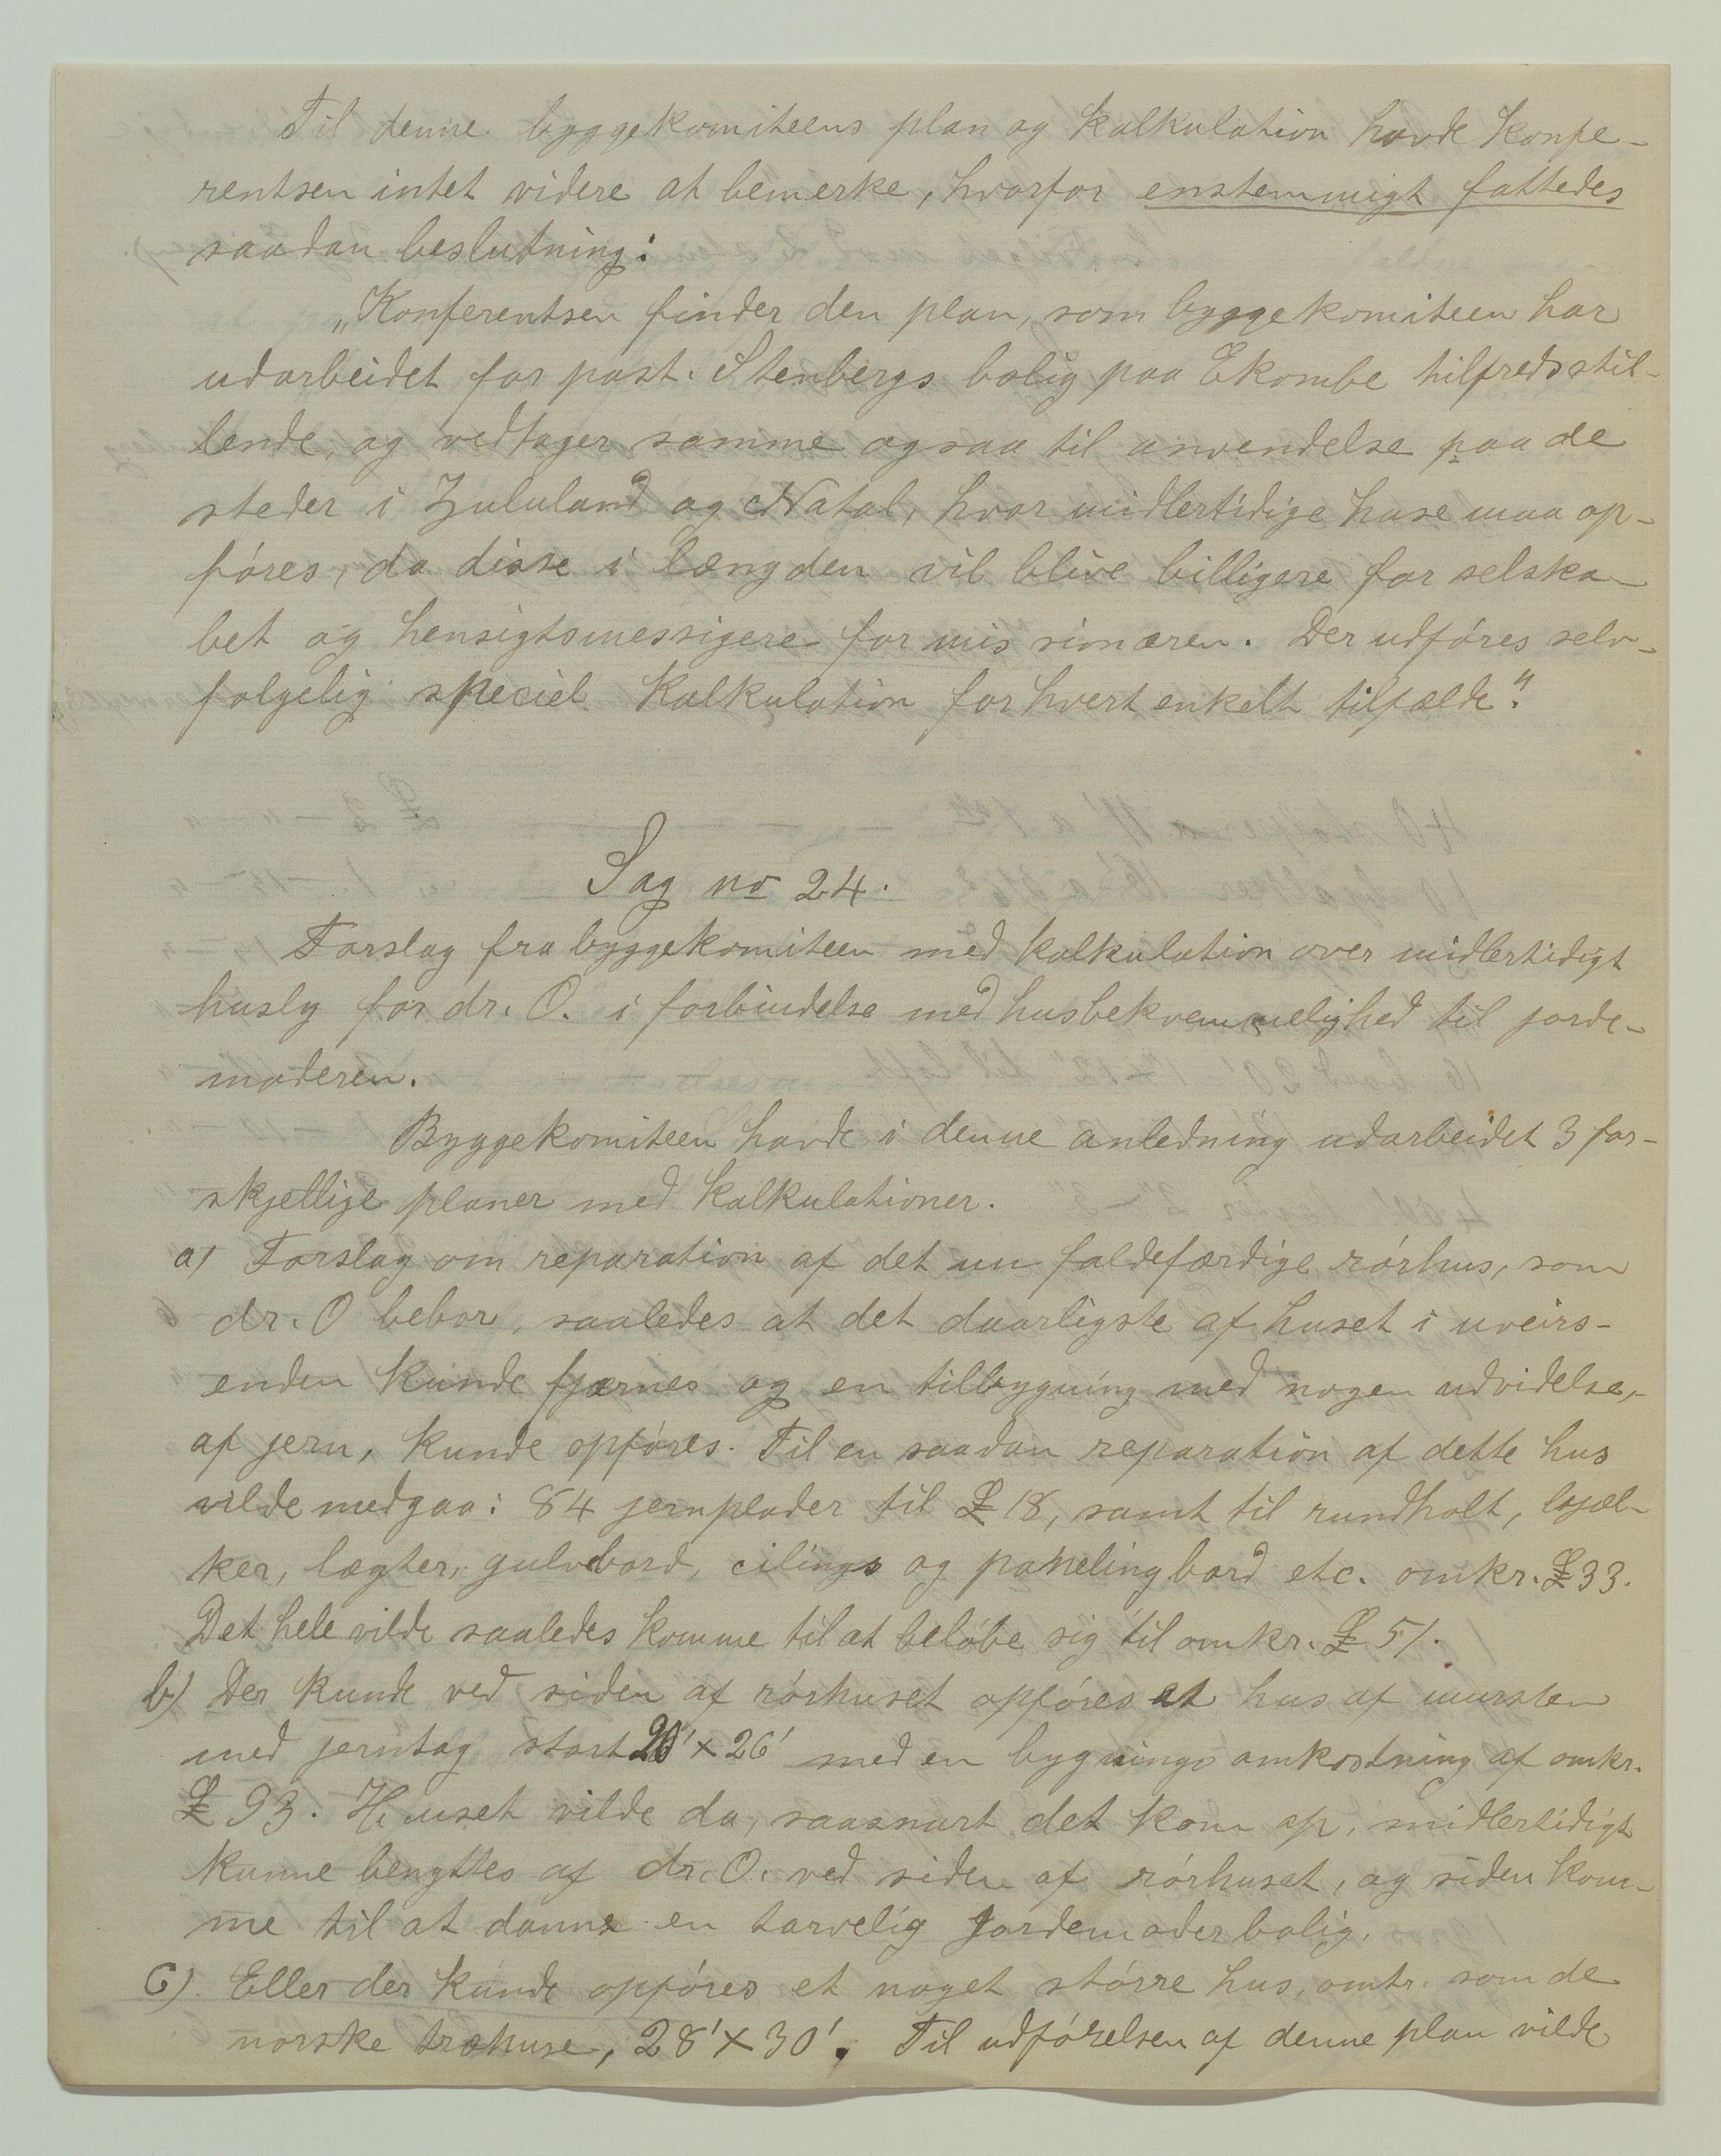 Til denne byggekomiteens plan og kalkulation havde Konfe-
rentsen intet videre at bemerke, hvorfor enstemmigt fattedes
saadan beslutning:
„Konferentsen finder den plan, som byggekomiteen har
udarbeidet for past. Stenbergs bolig paa Ekombe tilfredsstil-
lende, og vedtager samme ogsaa til anvendelse paa de
steder i Zululand og Natal, hvor midlertidige huse maa op-
føres, da disse i længden vil blive billigere for selska-
bet og hensigtsmessigere for missionæren. Der udføres selv-
følgelig speciel Kalkulation for hvert enkelt tilfælde."
Sag no 24.
Forslag fra byggekomiteen med kalkulation over midlertidigt
husly for dr. O. i forbindelse med husbekvemmelighed til jorde-
moderen.
Byggekomiteen havde i denne anledning udarbeidet 3 for-
skjellige planer med Kalkulationer.
a) Forslag om reparation af det nu faldefærdige rørhus, som
dr. O bebor, saaledes at det daarligste af huset i uveirs-
enden kunde fjærnes og en tilbygning med nogen udvidelse,
af jern, kunde opføres. Til en saadan reparation af dette hus
vilde medgaa: 84 jernplader til £ 18, samt til rundholt, bjæl-
ker, lægter, gulvbord, cilings og panelingbord etc. omkr. £ 33.
Det hele vilde saaledes komme til at beløbe sig til omkr. £ 51.
b) Der kunde ved siden af rørhuset opføres et hus af mursten
med jerntag stort 20' × 26' med en bygningsomkostning af omkr.
£ 93. Huset vilde da, saasnart det kom op, midlertidigt
kunne benyttes af dr. O. ved siden af rørhuset, og siden kom-
me til at danne en tarvelig Jordemoderbolig.
C). Eller der kunde opføres et noget større hus, omtr. som de
norske træhuse, 28' × 30'. Til udførelsen af denne plan vilde